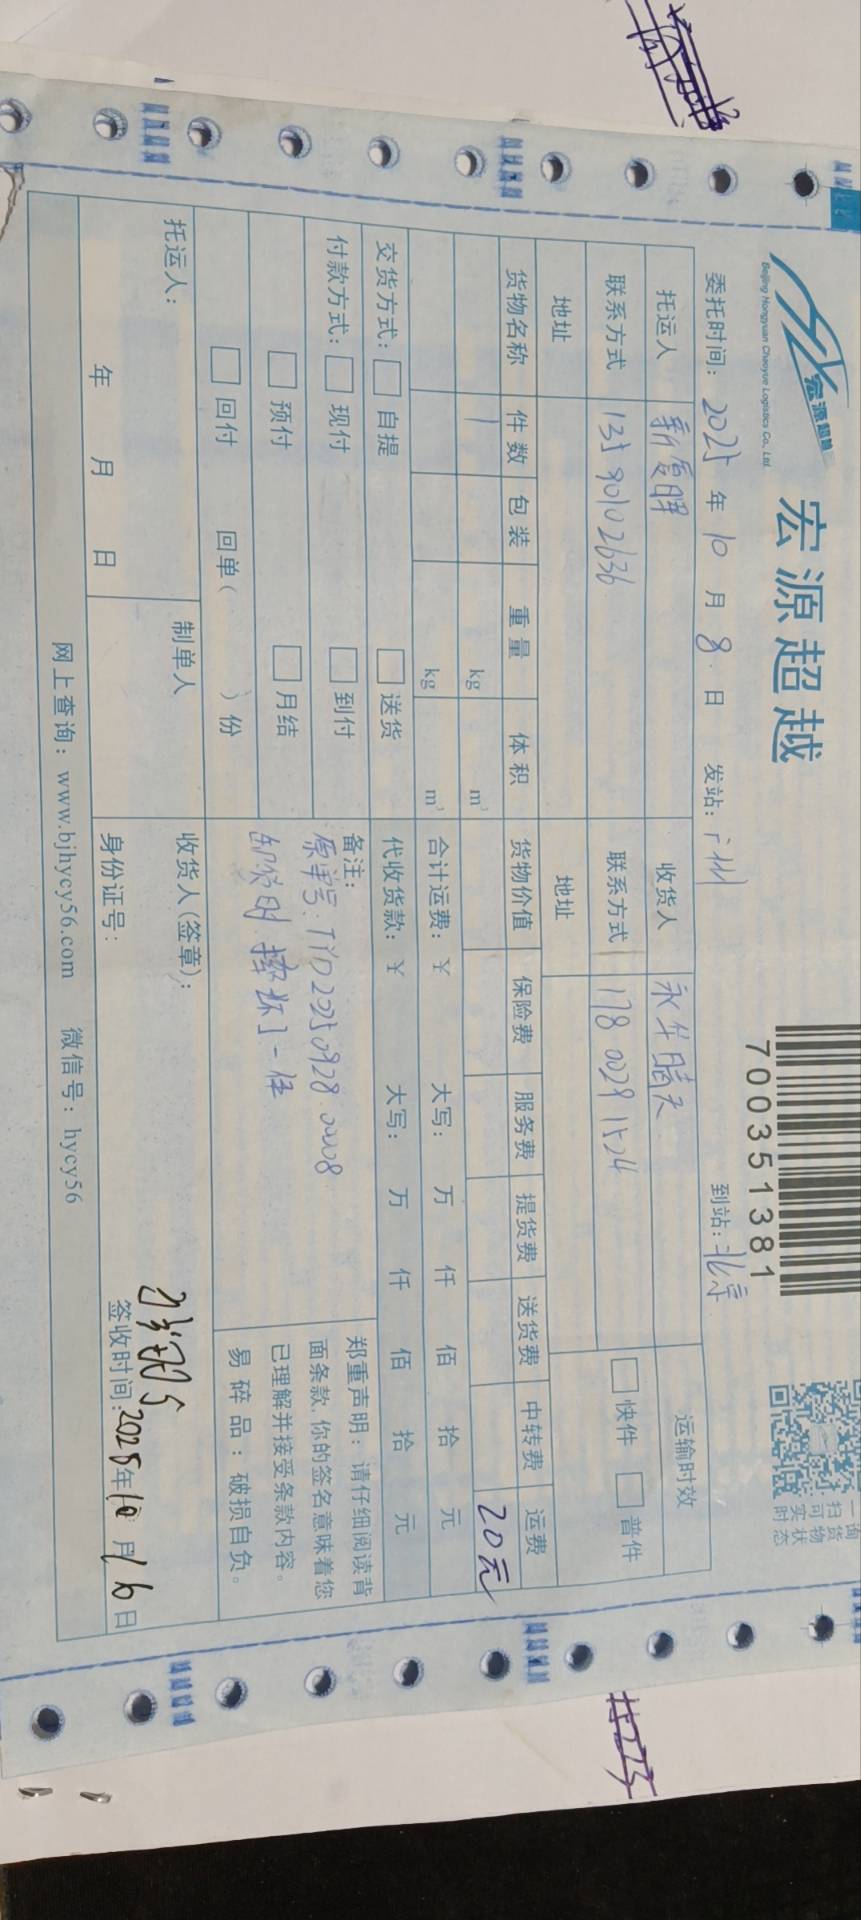 宏源超越
Beijing Hongyuan Chaoyue Logistics Co., Ltd.
宏源超越
700351381
一询
扫货
可物
实状
时态
委托时间: 2025 年 10 月 8 日 发站: 广州 到站: 北京
托运人 收货人 永华晴天 运输时效
联系方式 13590102636 联系方式 178 0029 1524 快件 普件
地址 地址
货物名称 件数 包装 重量 体积 货物价值 保险费 服务费 提货费 送货费 中转费 运费
1 kg m³ 20元
kg m³ 合计运费: ¥ 大写: 万 仟 佰 拾 元
交货方式: 自提 送货 代收货款: ¥ 大写: 万 仟 佰 拾 元
付款方式: 现付 到付 备注: 原单号: TYD20250928 0008
预付 月结 卸货时 坏了一件
回付 回单( )份
郑重声明: 请仔细阅读背
面条款, 你的签名意味着您
已理解并接受条款内容。
易碎品: 破损自负。
托运人: 制单人 收货人(签章):
年 月 日 身份证号: 签收时间: 2025年10月16日
网上查询: www.bjhycy56.com 微信号: hycy56